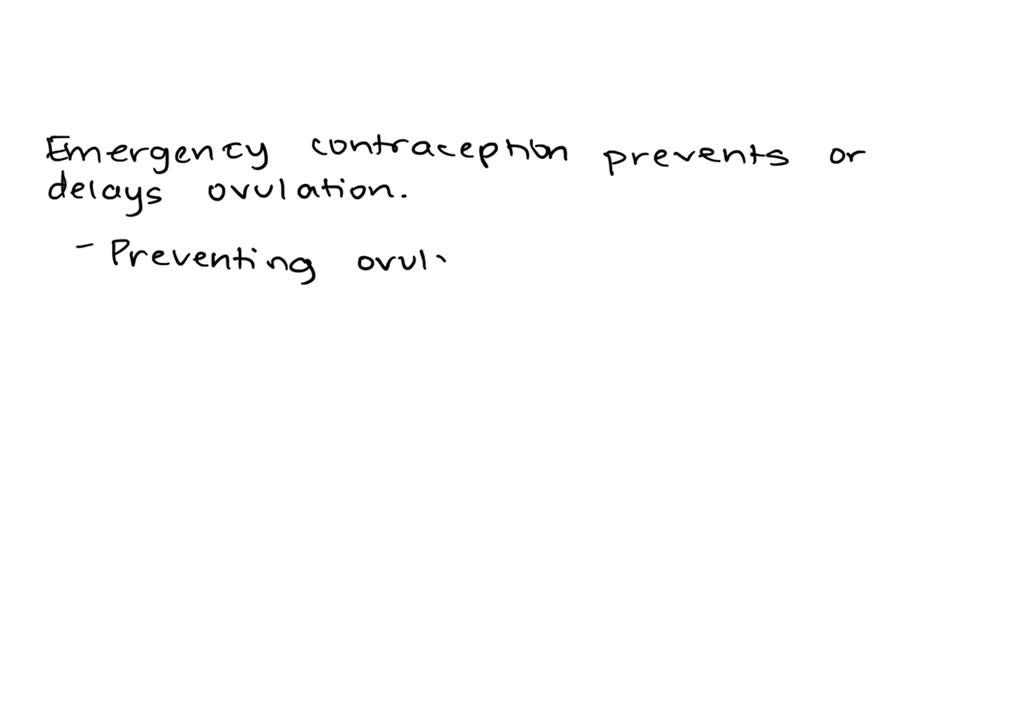 Emergency contraception prevents or
delays ovulation.
- Preventing ovul